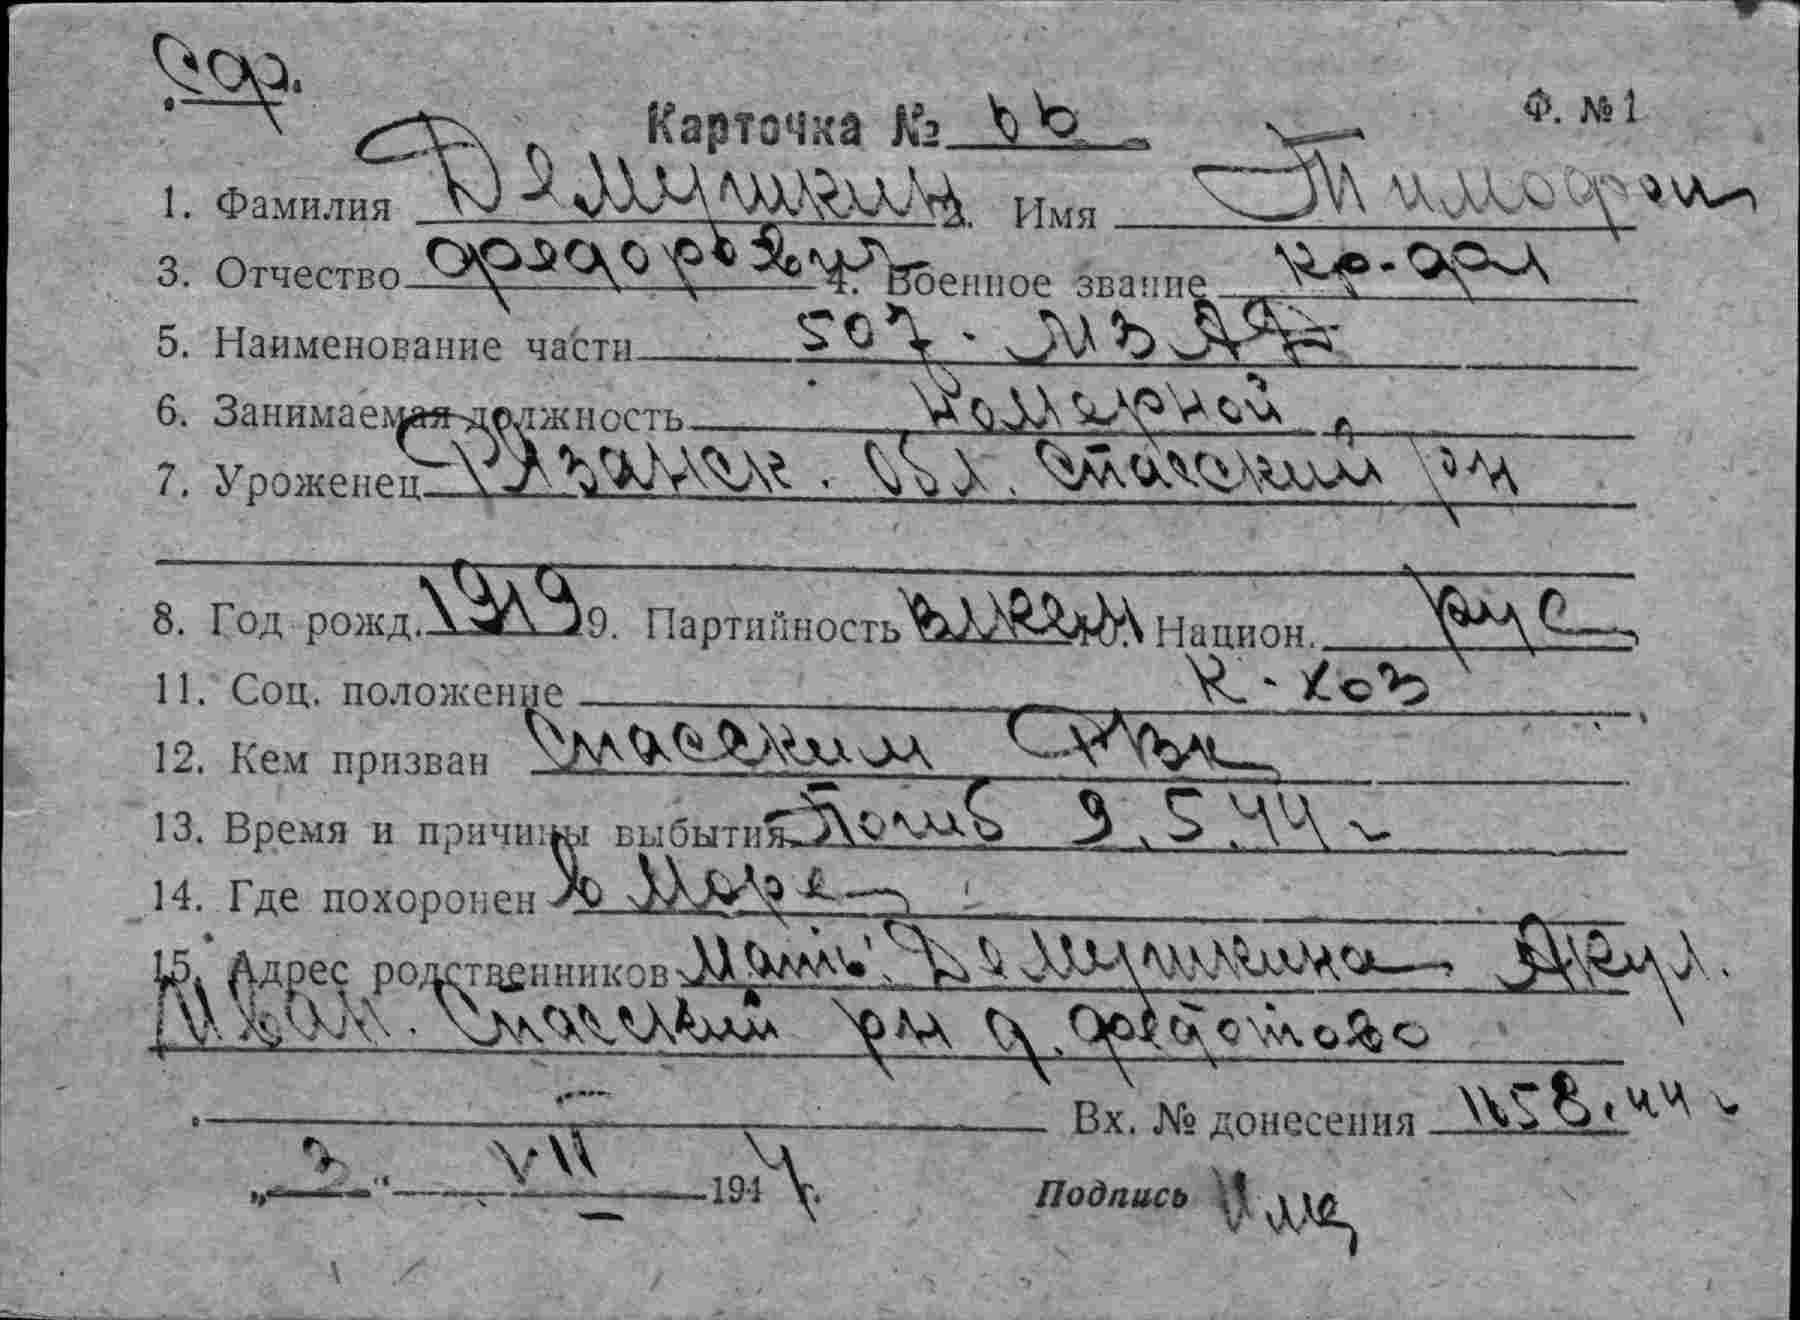 Сер.
Карточка № вв Ф. № 1
1. Фамилия Демушкин 2. Имя Тимофей
3. Отчество Федорович 4. Военное звание кр-фл
5. Наименование части 507-МЗАД
6. Занимаемая должность комерной
7. Уроженец Рязанск. обл. Спасский рн
8. Год рожд. 1919 9. Партийность влксм 10. Национ. рус
11. Соц. положение к-хоз
12. Кем призван Спасским РВК
13. Время и причины выбытия Погиб 9.5.44 г
14. Где похоронен в море
15. Адрес родственников Мать: Демушкина Акул.
Иван. Спасский рн д. Федотово
Вх. № донесения 1158.44 г
„3“ VII 1944 г.
Подпись